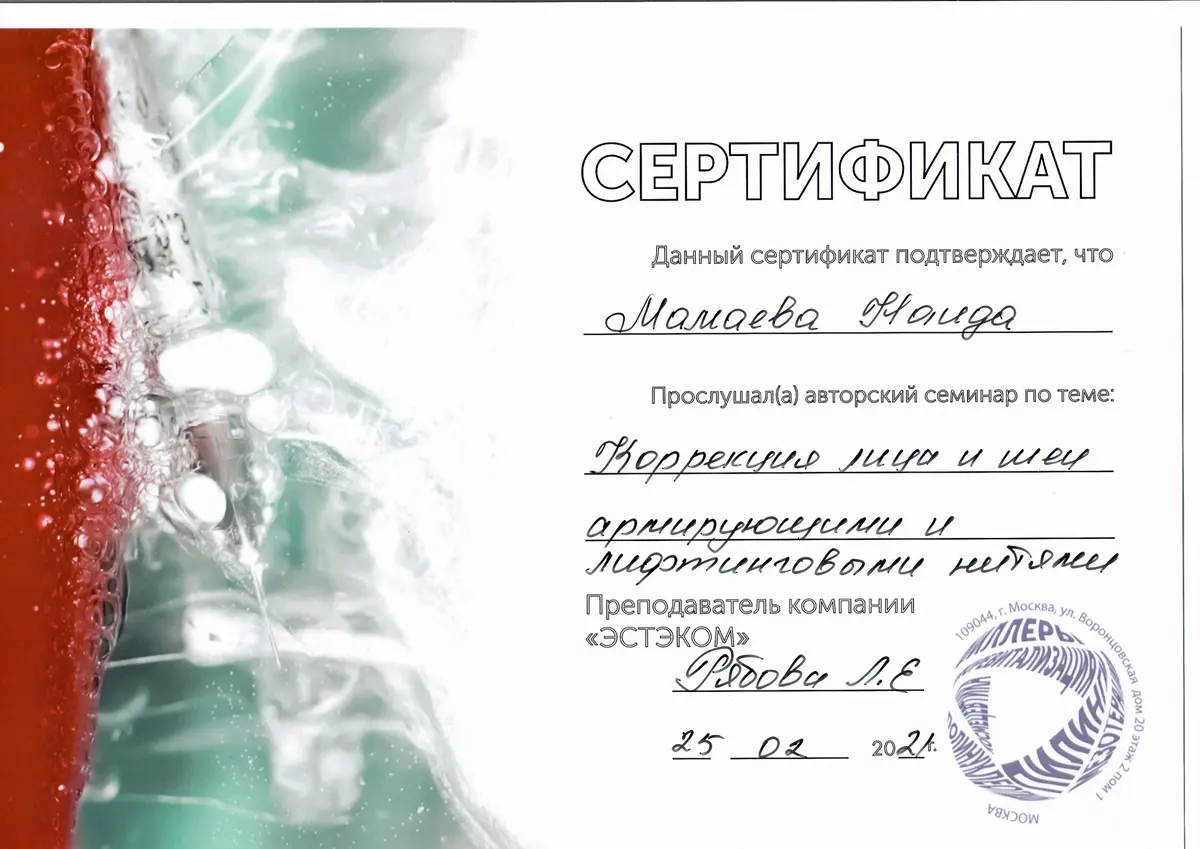 СЕРТИФИКАТ
Данный сертификат подтверждает, что
Мамаева Наида
Прослушал(а) авторский семинар по теме:
Коррекция лица и шеи
армирующими и
лифтинговыми нитями
Преподаватель компании
«ЭСТЭКОМ»
Рябова Л.Е
25 02 2021г.
109044, г. Москва, ул. Воронцовская дом 20 этаж 2 пом 1
ФИЛЛЕРЫ
РЕВИТАЛИЗАЦИЯ
ПИЛИНГ
МОСКВА